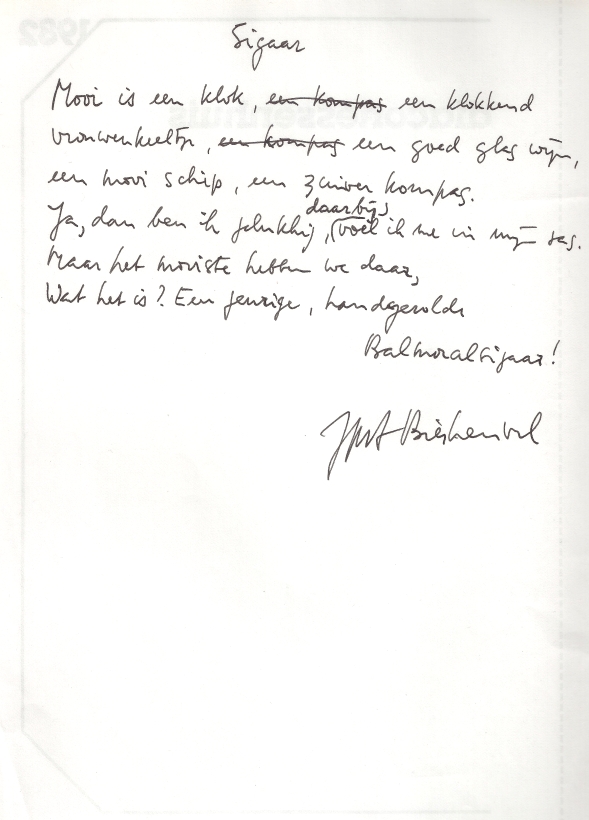 Sigaar
Mooi is een klok, een kompas een klokkend
vrouwenkeeltje, een kompas een goed glas wijn,
een mooi schip, een zuiver kompas.
daarbij
Ja, dan ben ik gelukkig, voel ik me in mijn sas.
Maar het mooiste hebben we daar,
Wat het is? Een jeuïge, handgerolde
Balmoralsigaar!
Maarten Biesheuvel
1982
diaconessenhuis